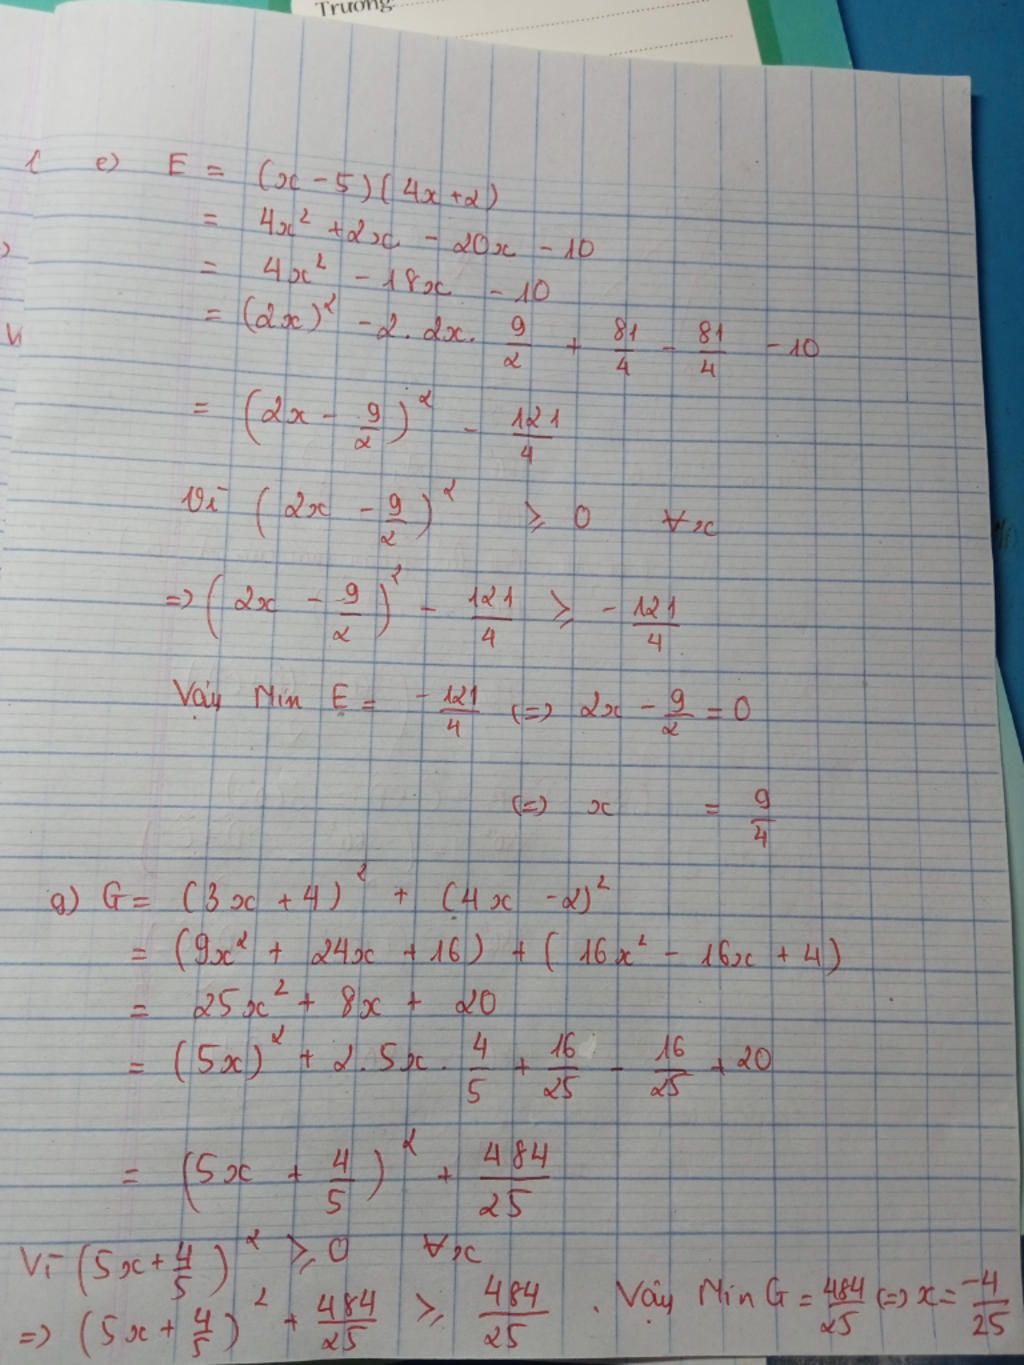 Trường
1 e) E = (x - 5)(4x + 2)
= 4x² + 2x - 20x - 10
= 4x² - 18x - 10
= (2x)² - 2 . 2x . 9/2 + 81/4 - 81/4 - 10
= (2x - 9/2)² - 121/4
Vì (2x - 9/2)² ⩾ 0 ∀x
=> (2x - 9/2)² - 121/4 ⩾ - 121/4
Vậy Min E = - 121/4 (=) 2x - 9/2 = 0
(=) x = 9/4
g) G = (3x + 4)² + (4x - 2)²
= (9x² + 24x + 16) + (16x² - 16x + 4)
= 25x² + 8x + 20
= (5x)² + 2 . 5x . 4/5 + 16/25 - 16/25 + 20
= (5x + 4/5)² + 484/25
Vì (5x + 4/5)² ⩾ 0 ∀x
=> (5x + 4/5)² + 484/25 ⩾ 484/25 . Vậy Min G = 484/25 (=) x = -4/25